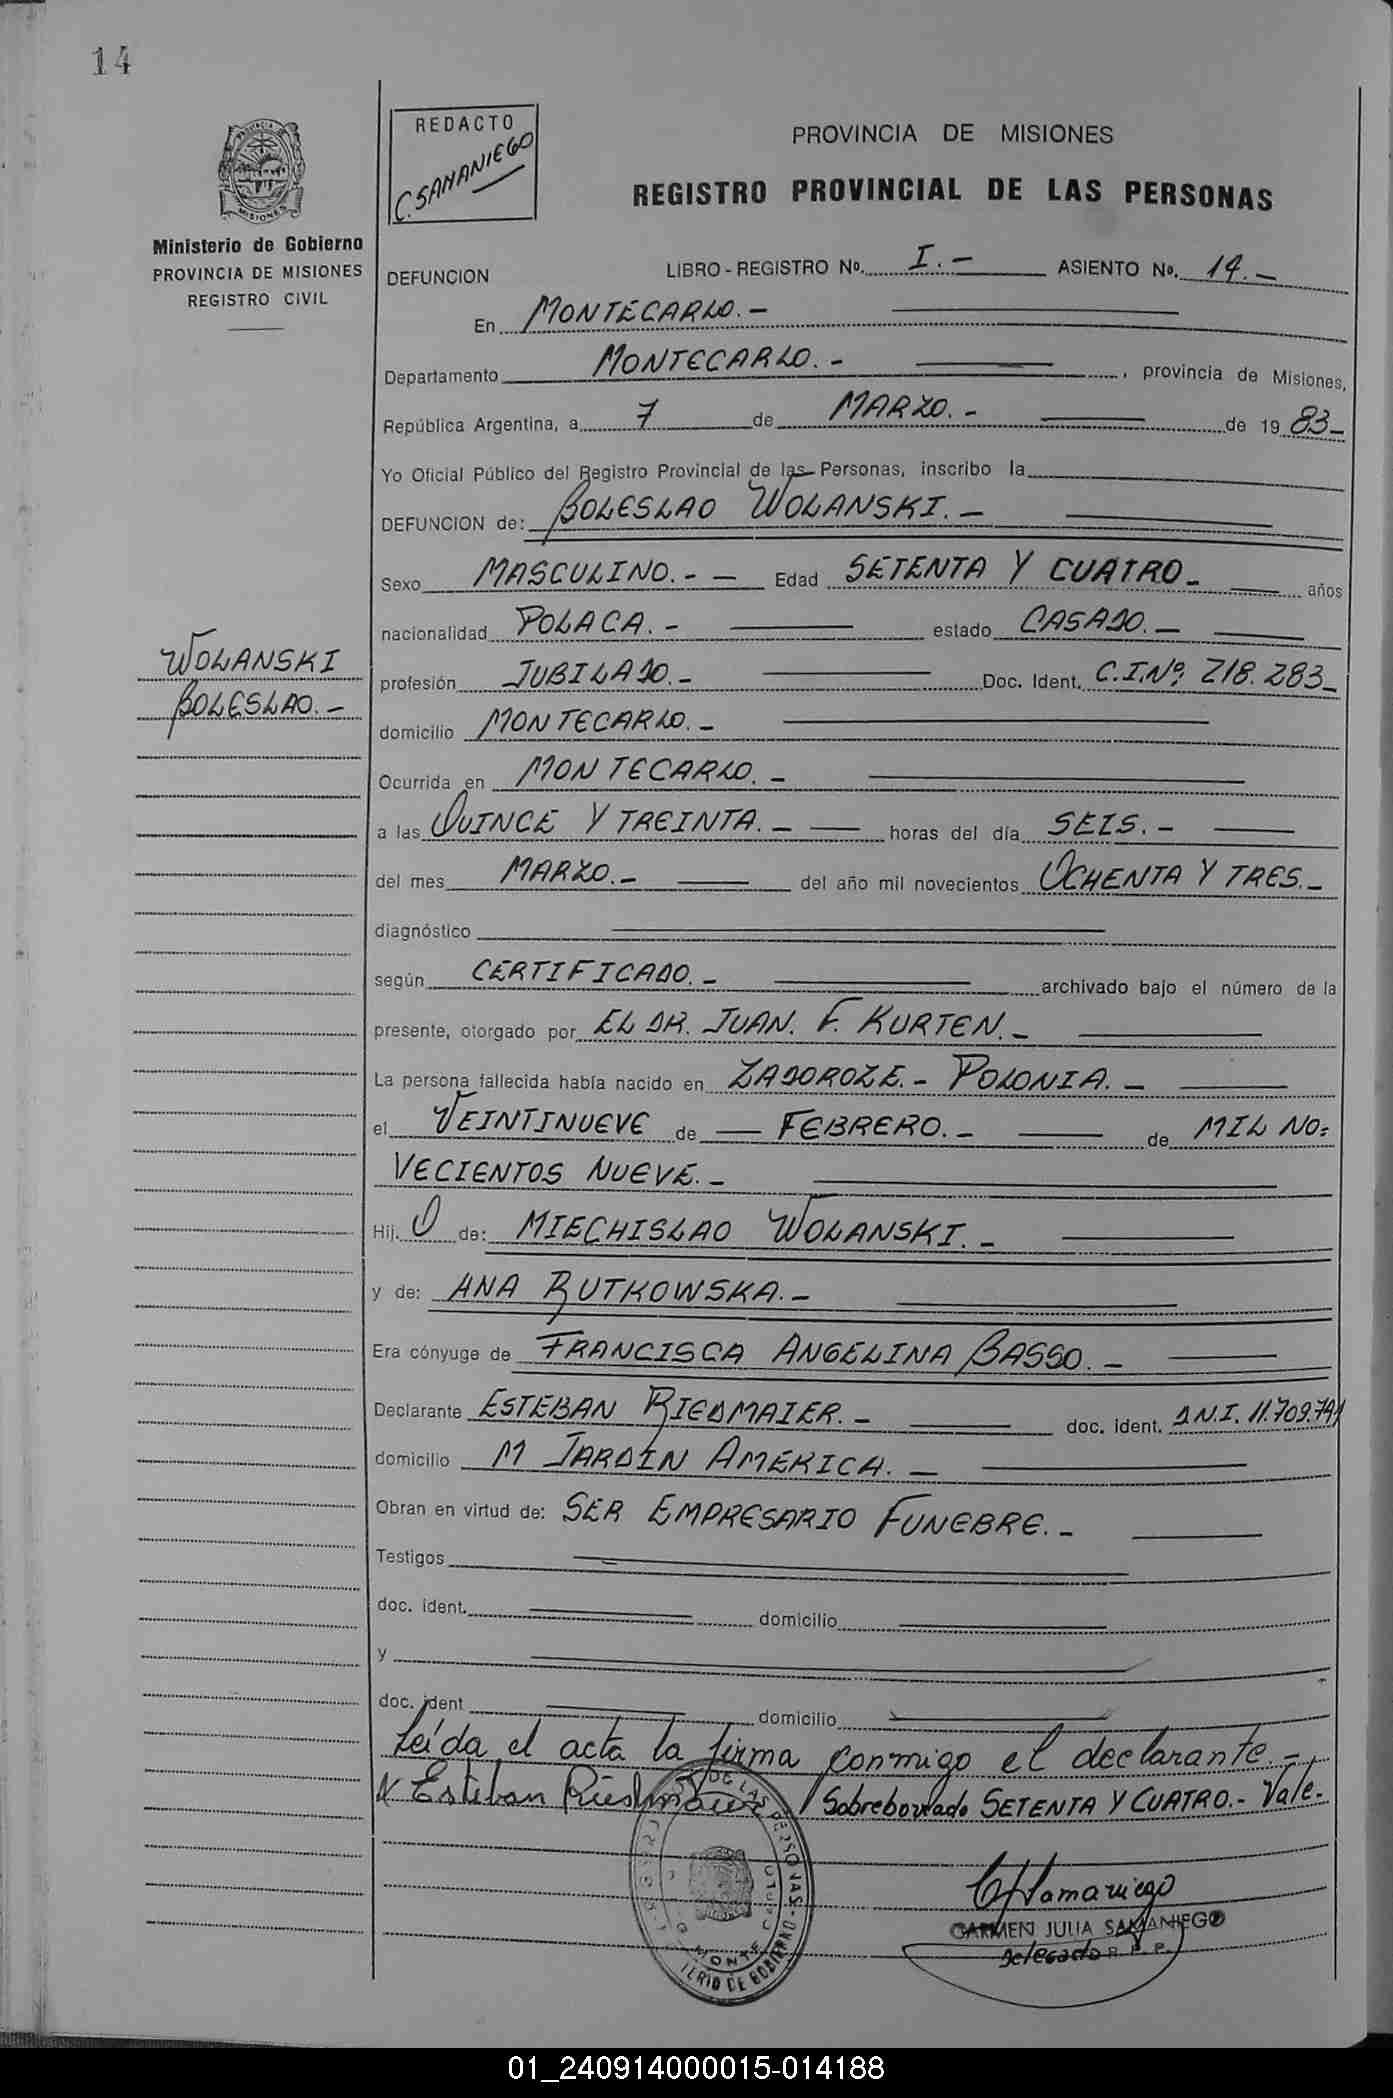 14
REDACTO
C. SAMANIEGO
PROVINCIA DE MISIONES
REGISTRO PROVINCIAL DE LAS PERSONAS
MISIONES
Ministerio de Gobierno
PROVINCIA DE MISIONES
REGISTRO CIVIL
DEFUNCION LIBRO - REGISTRO No. I.- ASIENTO No. 14.-
En MONTECARLO.-
Departamento MONTECARLO.- , provincia de Misiones,
República Argentina, a 7 de MARZO.- de 19 83-
Yo Oficial Público del Registro Provincial de las Personas, inscribo la
DEFUNCION de: BOLESLAO WOLANSKI.-
Sexo MASCULINO.- - Edad SETENTA Y CUATRO- años
nacionalidad POLACA.- estado CASADO.-
WOLANSKI
BOLESLAO.-
profesión JUBILADO.- Doc. Ident. C.I.Nº: 218.283-
domicilio MONTECARLO.-
Ocurrida en MONTECARLO.-
a las QUINCE Y TREINTA.- horas del día SEIS.-
del mes MARZO.- del año mil novecientos OCHENTA Y TRES.-
diagnóstico
según CERTIFICADO.- archivado bajo el número de la
presente, otorgado por EL DR. JUAN. F. KURTEN.-
La persona fallecida había nacido en ZADOROZE.- POLONIA.-
el VEINTINUEVE de - FEBRERO.- de MIL NO=
VECIENTOS NUEVE.-
Hij. O de: MIECHISLAO WOLANSKI.-
y de: ANA RUTKOWSKA.-
Era cónyuge de FRANCISCA ANGELINA BASSO.-
Declarante ESTEBAN RIEDMAIER.- doc. ident. D.N.I. 11.709.791
domicilio M JARDIN AMERICA.-
Obran en virtud de: SER EMPRESARIO FUNEBRE.-
Testigos
doc. ident. domicilio
y
doc. ident domicilio
Leída el acta la firma conmigo el declarante.-
X Esteban Riedmaier / Sobreborrado SETENTA Y CUATRO.- Vale.-
DE LAS PERSONAS
MONTE
TERIO DE GOBIERNO
CJSamaniego
CARMEN JULIA SAMANIEGO
Delegado R. P. P.
01_240914000015-014188